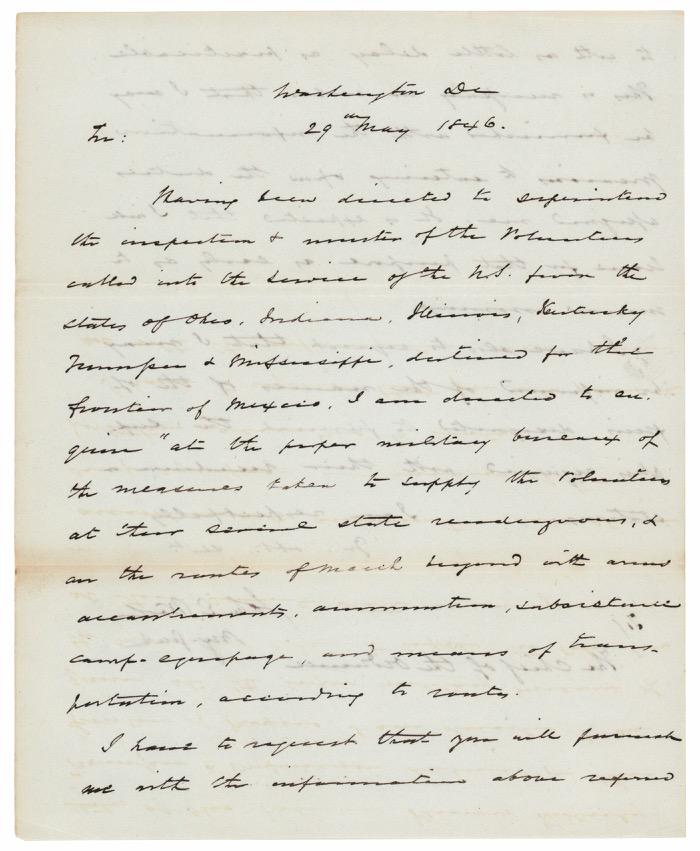 Washington DC
29th May 1846.
Sir:
Having been directed to superintend
the inspection & muster of the Volunteers
called into the service of the U.S. from the
states of Ohio, Indiana, Illinois, Kentucky
Tennessee & Mississippi, destined for the
frontier of Mexico, I am directed to en-
quire "at the proper military bureaux of
the measures taken to supply the Volunteers
at their several state rendezvous, &
on the routes of march beyond with arms
accoutrements, ammunition, subsistence
camp-equipage, and means of trans-
portation, according to routes.
I have to request that you will furnish
me with the information above referred